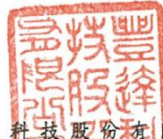 豐達科
技股
有限公
科技股份有